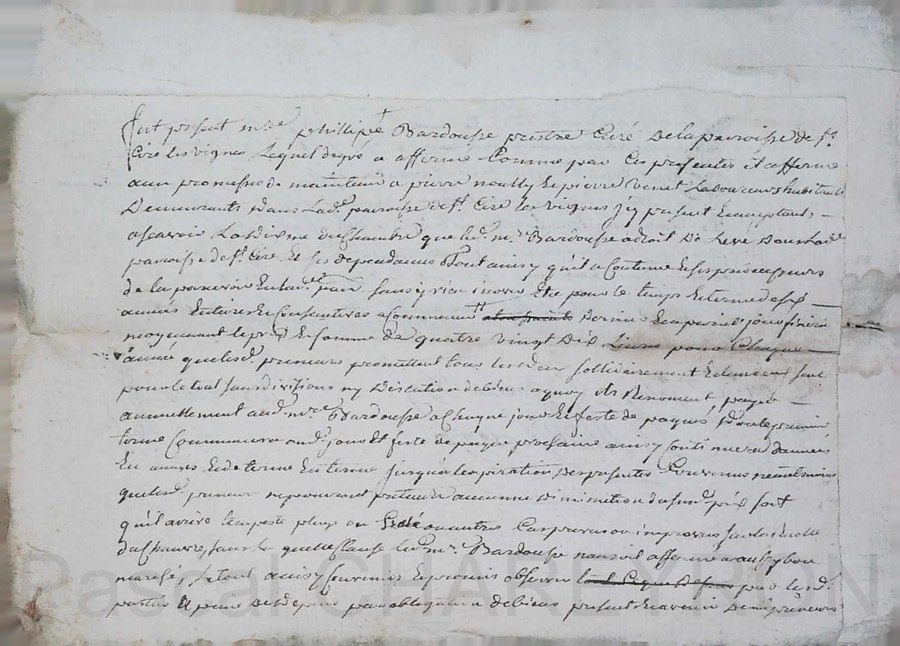 fut present m.re phillipe Bardousse prestre Curé de la paroisse de S.t
Cire les vignes Lequel de gré a affermé Comme par Ces presentes il afferme
aux promesse de maintenir a pierre noully et pierre venet Laboureurs habitants
Demeurants dans Lad.e paroisse de S.t Cire les vignes Jcy present Et acceptants
a scavoir La disme du Chambre que led.t m.re Bardousse a droit De Levé Dans Lad.e
paroisse de S.t Cire Et ses dependances Tout ainsy qu'il a Coutume Et ses predecesseurs
de la percevoir sans y rien inover Et Ce pour le temps Et terme de six
années Entieres Et Consecutives a Commencer
moyennant le prix Et somme de quatre vingt Dix Livres pour Chaque
année que lesd. preneurs promettent tous les deux sollidairement Et lun deux seul
pour le tout sans division ny discution de biens a quoy ils Renoncent payer
annuellement aud. m.re Bardousse a Chaque jour Et feste de paques dont le premier
terme Commencera aud. jour Et feste de paque prochaine ainsy Continuer d'années
En années Et de terme En terme jusqu'a Lexpiration Des presentes Convenu neanmoins
que lesd. preneurs ne pourront pretendre aucunne diminution dusud. prix soit
qu'il arrive tempeste pluye ou Grele ou autres Cas prevus ou impreveus sur la recolte
du Chanvre, sans La quelle Clause led. m.re Bardousse nauroit affermé a un sy bon
marché, Le tout ainsy Convenu Et promis observer par lesd.
parties Et peine de tous depens par obligation de biens present Et avenir Des preneurs
Pascal CHARLADON